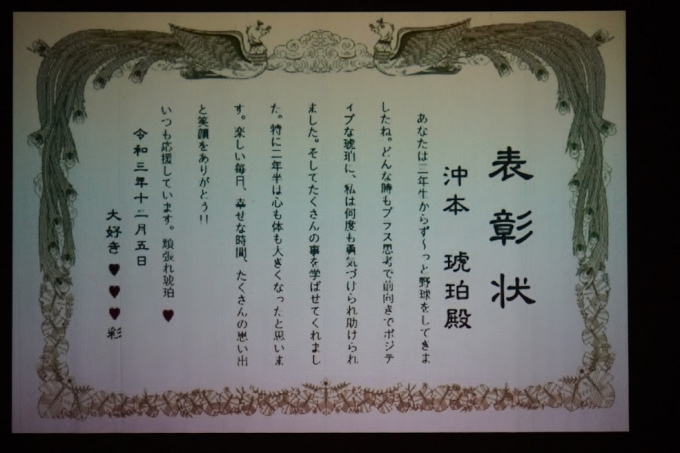 表彰状
沖本 琥珀殿
あなたは二年生からず〜っと野球をしてきま
したね。どんな時もプラス思考で前向きでポジテ
ィブな琥珀に、私は何度も勇気づけられ助けられ
ました。そしてたくさんの事を学ばせてくれまし
た。特に二年半は心も体も大きくなったと思いま
す。楽しい毎日、幸せな時間、たくさんの思い出
と笑顔をありがとう!!
いつも応援しています。頑張れ琥珀 ♥
令和三年十二月五日
大好き♥♥♥彩